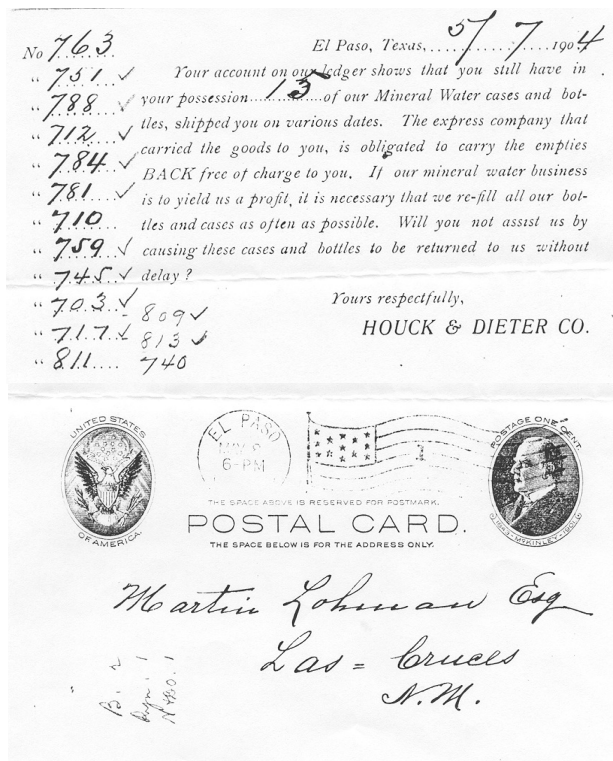 El Paso, Texas, 5/7 1904
No 763
" 751 ✓
" 788 ✓
" 712 ✓
" 784 ✓
" 781 ✓
" 710
" 759 ✓
" 745 ✓
" 703 ✓
" 717 ✓
" 811
809 ✓
813 ✓
740
Your account on our ledger shows that you still have in
your possession 15 of our Mineral Water cases and bot-
tles, shipped you on various dates. The express company that
carried the goods to you, is obligated to carry the empties
BACK free of charge to you. If our mineral water business
is to yield us a profit, it is necessary that we re-fill all our bot-
tles and cases as often as possible. Will you not assist us by
causing these cases and bottles to be returned to us without
delay?
Yours respectfully,
HOUCK & DIETER CO.
UNITED STATES
OF AMERICA
EL PASO
6-PM
1
POSTAGE ONE CENT.
1843-McKINLEY-1901
THE SPACE ABOVE IS RESERVED FOR POSTMARK.
POSTAL CARD.
THE SPACE BELOW IS FOR THE ADDRESS ONLY.
Martin Lohman Esq
Las = Cruces
N.M.
B. 2